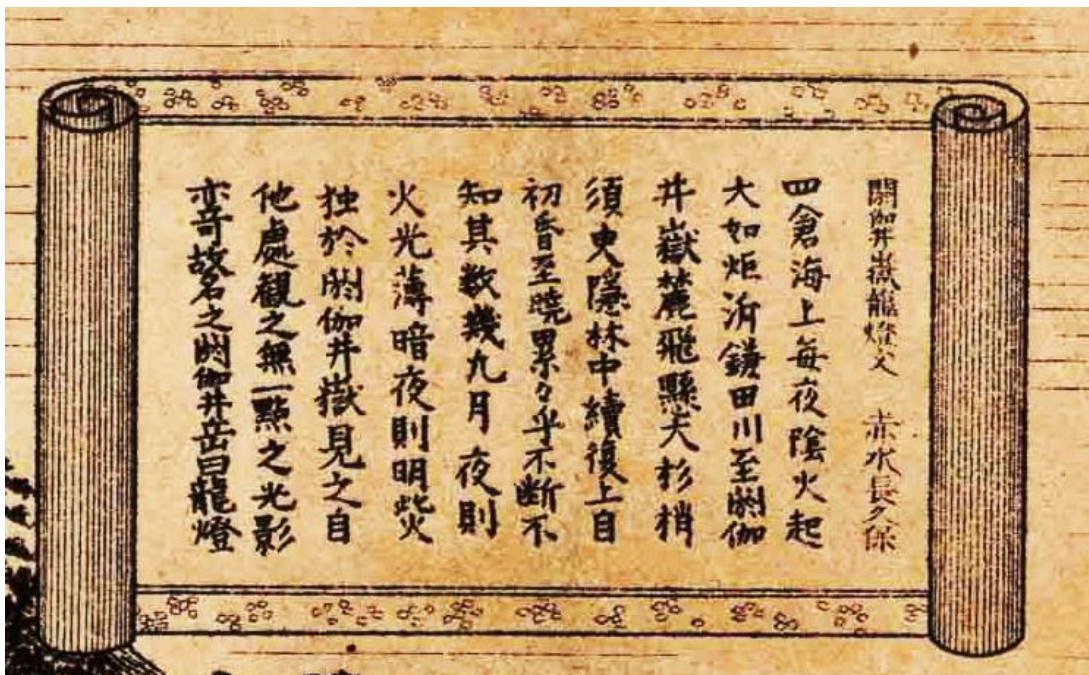 閼伽井嶽龍燈文 赤水長久保
四倉海上每夜陰火起
大如炬泝鎌田川至閼伽
井嶽麓飛懸大杉梢
須臾隠林中續復上自
初昏至曉累々乎不断不
知其数幾九月夜則
火光薄暗夜則明此火
独於閼伽井嶽見之自
他處観之無一點之光影
亦奇故名之閼伽井岳曰龍燈